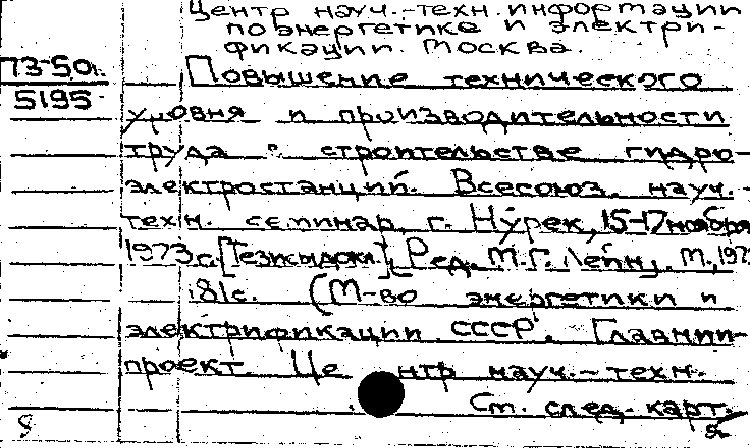 Центр науч.-техн. информации
по энергетике и электри-
фикации. Москва.
73-50г.
5195
Повышение технического
уровня и производительности
труда в строительстве гидро-
электростанций. Всесоюз. науч.-
техн. семинар, г. Нурек, 15-17 ноября
1973 г. [Тезисы докл.]. Ред. М.Г. М., 1973
181с. (М-во энергетики и
электрификации СССР. Главнии-
проект. Це нтр науч.-техн.
См. след. карт.